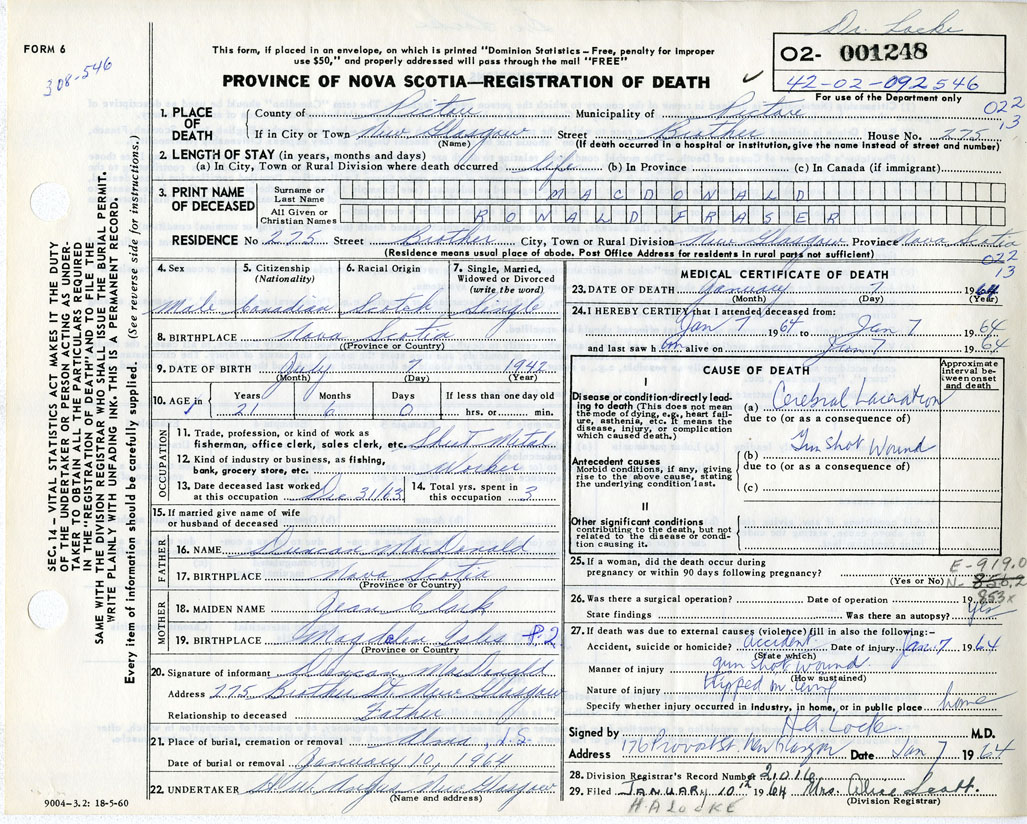 Dr. Locke
FORM 6
308-546
This form, if placed in an envelope, on which is printed "Dominion Statistics – Free, penalty for improper
use $50," and properly addressed will pass through the mail "FREE"
02- 001248
42-02-092546
For use of the Department only
PROVINCE OF NOVA SCOTIA—REGISTRATION OF DEATH
022
13
1. PLACE OF DEATH
County of Pictou Municipality of Pictou
If in City or Town New Glasgow Street Brother House No. 275
(Name) (If death occurred in a hospital or institution, give the name instead of street and number)
2. LENGTH OF STAY (in years, months and days)
(a) In City, Town or Rural Division where death occurred life (b) In Province (c) In Canada (if immigrant)
3. PRINT NAME OF DECEASED
Surname or Last Name MACDONALD
All Given or Christian Names RONALD FRASER
RESIDENCE No 275 Street Brother City, Town or Rural Division New Glasgow Province Nova Scotia
(Residence means usual place of abode. Post Office Address for residents in rural parts not sufficient)
022
13
4. Sex Male
5. Citizenship (Nationality) Canadian
6. Racial Origin Scotch
7. Single, Married, Widowed or Divorced (write the word) Single
8. BIRTHPLACE Nova Scotia
(Province or Country)
9. DATE OF BIRTH July 7 1942
(Month) (Day) (Year)
10. AGE in Years 21 Months 6 Days 0 If less than one day old hrs. or min.
OCCUPATION
11. Trade, profession, or kind of work as
fisherman, office clerk, sales clerk, etc. Sheet Metal
12. Kind of industry or business, as fishing,
bank, grocery store, etc. Worker
13. Date deceased last worked
at this occupation Dec 31/63
14. Total yrs. spent in
this occupation 3
15. If married give name of wife
or husband of deceased
FATHER
16. NAME Duncan MacDonald
17. BIRTHPLACE Nova Scotia
(Province or Country)
MOTHER
18. MAIDEN NAME Jean Clark
19. BIRTHPLACE Magdalen Isles P.2
(Province or Country)
20. Signature of informant Duncan MacDonald
Address 275 Brother St New Glasgow
Relationship to deceased Father
21. Place of burial, cremation or removal
Date of burial or removal January 10, 1964
22. UNDERTAKER New Glasgow
(Name and address)
9004–3.2: 18-5-60
MEDICAL CERTIFICATE OF DEATH
23. DATE OF DEATH January 7 1964
(Month) (Day) (Year)
24. I HEREBY CERTIFY that I attended deceased from:
Jan 7 1964 to Jan 7 1964
and last saw him alive on Jan 7 1964
CAUSE OF DEATH
Approximate interval between onset and death
I
Disease or condition directly leading to death (This does not
the mode of dying, e.g., heart failure, asthenia, etc. It means the
disease, injury, or complication
which caused death.)
(a) Cerebral Laceration
due to (or as a consequence of)
Gun Shot Wound
Antecedent causes
Morbid conditions, if any, giving
rise to the above cause, stating
the underlying condition last.
(b)
due to (or as a consequence of)
(c)
II
Other significant conditions
contributing to the death, but not
related to the disease or condition
causing it.
25. If a woman, did the death occur during
pregnancy or within 90 days following pregnancy?
(Yes or No)
E-919.0
N-856.2
853x
26. Was there a surgical operation? Date of operation 19
State findings Was there an autopsy? Yes
27. If death was due to external causes (violence) fill in also the following:–
Accident, suicide or homicide? Accident Date of injury Jan. 7 1964
(State which)
Manner of injury gun shot wound
(How sustained)
Nature of injury tripped
Specify whether injury occurred in industry, in home, or in public place home
Signed by H.A. Locke M.D.
Address 176 Provost St. New Glasgow Date Jan 7 1964
28. Division Registrar's Record Number 21016
29. Filed JANUARY 10th 1964 Mrs. Alice Scott.
(Division Registrar)
H.A LOCKE
SEC. 14 – VITAL STATISTICS ACT MAKES IT THE DUTY
OF THE UNDERTAKER OR PERSON ACTING AS UNDERTAKER
TO OBTAIN ALL THE PARTICULARS REQUIRED
IN THE "REGISTRATION OF DEATH" AND TO FILE THE
SAME WITH THE DIVISION REGISTRAR WHO SHALL ISSUE THE BURIAL PERMIT.
WRITE PLAINLY WITH UNFADING INK. THIS IS A PERMANENT RECORD.
Every item of information should be carefully supplied. (See reverse side for instructions.)